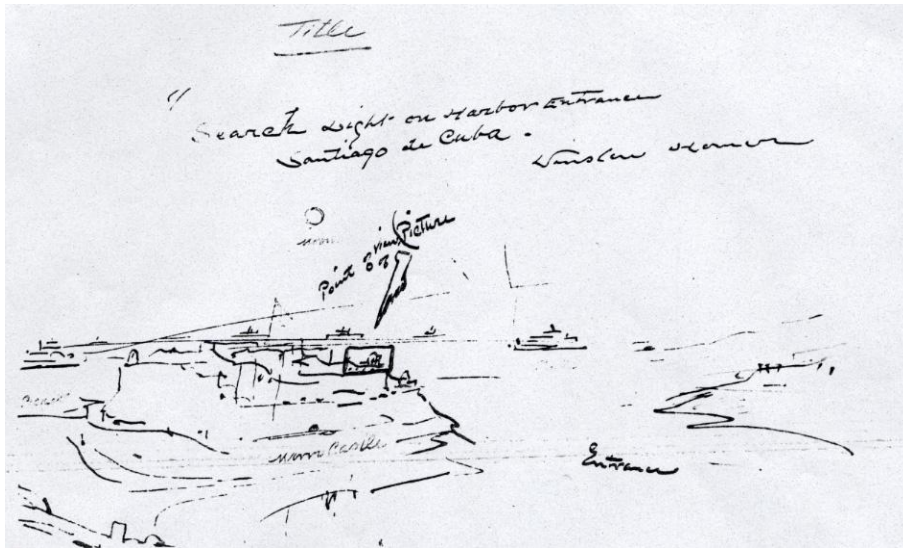 Title
"Search Light on Harbor Entrance
Santiago de Cuba.
Winslow Homer
moon
Point of view
of Picture
Morro Castle
Entrance